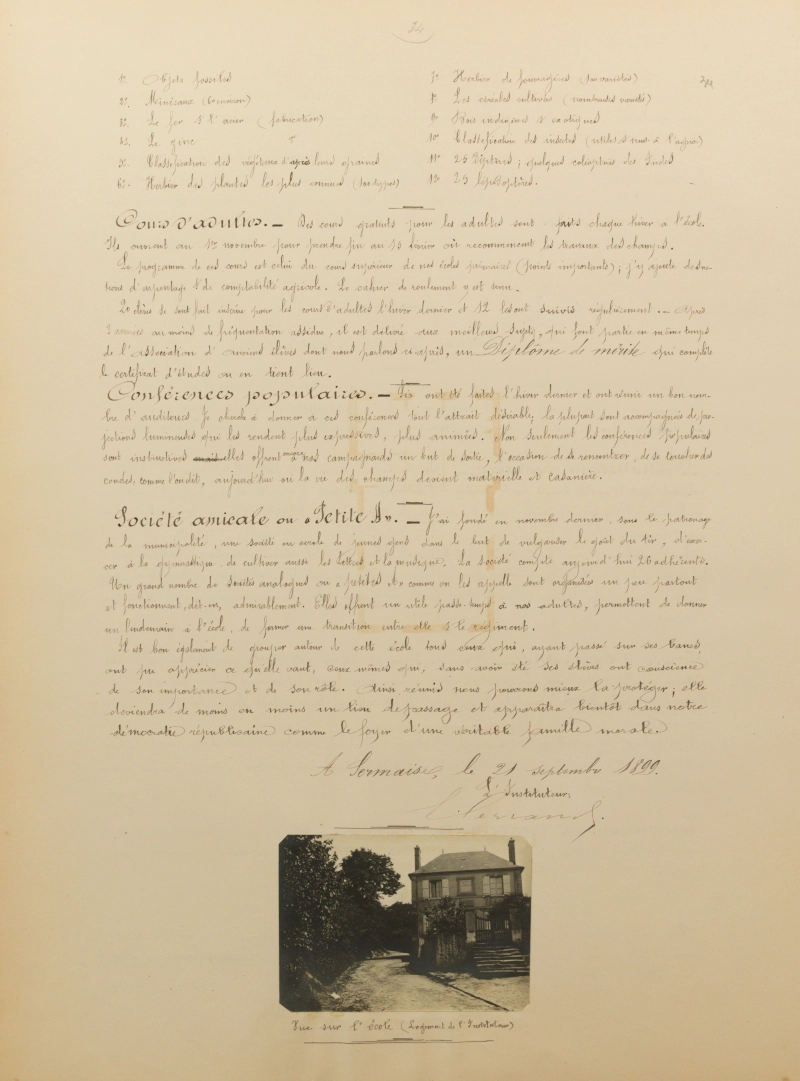 34
1º. Objets fossiles
2º. Minéraux (
3º. Le fer & l'acier (fabrication)
4º. Le zinc
5º. Classification des végétaux d'après leurs graines
6º. Herbier des plantes les plus connues (
7º Herbier de fourragères (
8º Les céréales cultivées (nombreuses variétés)
9º Bois indigènes & exotiques
10º Classification des insectes (utiles &
11º 25 Diptères ; quelques coléoptères des Indes
12º 25 lépidoptères.
Cours d'adultes. — Des cours gratuits pour les adultes sont faits chaque hiver à l'école.
Ils ouvrent au 1er novembre pour prendre fin au 15 février où recommencent les travaux des champs.
Le programme de ces cours est celui du cours supérieur de nos écoles primaires (points importants) ; j'y ajoute des no-
tions d'arpentage & de comptabilité agricole. Le cahier de roulement y est tenu.
20 élèves se sont fait inscrire pour les cours d'adultes l'hiver dernier et 12 les ont suivis régulièrement. — Après
3 années au moins de fréquentation assidue, il est délivré aux meilleurs sujets, qui font partie en même temps
de l'association d'anciens élèves dont nous parlons ci-après, un Diplôme de mérite qui complète
le certificat d'études ou en tient lieu.
Conférences populaires. — Six ont été faites l'hiver dernier et ont réuni un bon nom-
bre d'auditeurs. Je cherche à donner à ces conférences tout l'attrait désirable, la plupart sont accompagnées de pro-
jections lumineuses qui les rendent plus expressives, plus animées. Non seulement les conférences populaires
sont instructives mais elles offrent encore à nos campagnards un but de sortie, l'occasion de se rencontrer, de se toucher des
coudes, comme l'on dit, aujourd'hui où la vie des champs devient matérielle et casanière.
Société amicale ou « Petite A ». — J'ai fondé en novembre dernier, sous le patronage
de la municipalité, une société ou cercle de jeunes gens dans le but de vulgariser le goût du tir, d'exer-
cer à la gymnastique, de cultiver aussi les lettres et la musique. La société compte aujourd'hui 26 adhérents.
Un grand nombre de sociétés analogues ou « petites A » comme on les appelle sont organisées un peu partout
et fonctionnent, dit-on, admirablement. Elles offrent un utile passe-temps à nos adultes, permettent de donner
un lendemain à l'école, de former une transition entre elle & le régiment.
Il est bon également de grouper autour de cette école tous ceux qui, ayant passé sur ses bancs,
ont pu apprécier ce qu'elle vaut, ceux mêmes qui, sans avoir été ses élèves ont conscience
de son importance et de son rôle. Ainsi réunis nous pourrons mieux la protéger ; elle
deviendra de moins en moins un lieu de passage et apparaîtra bientôt dans notre
démocratie républicaine comme le foyer d'une véritable famille morale.
A Sermaise, le 21 septembre 1899.
L'Instituteur,
Vue sur l'école (Logement de l'Instituteur)